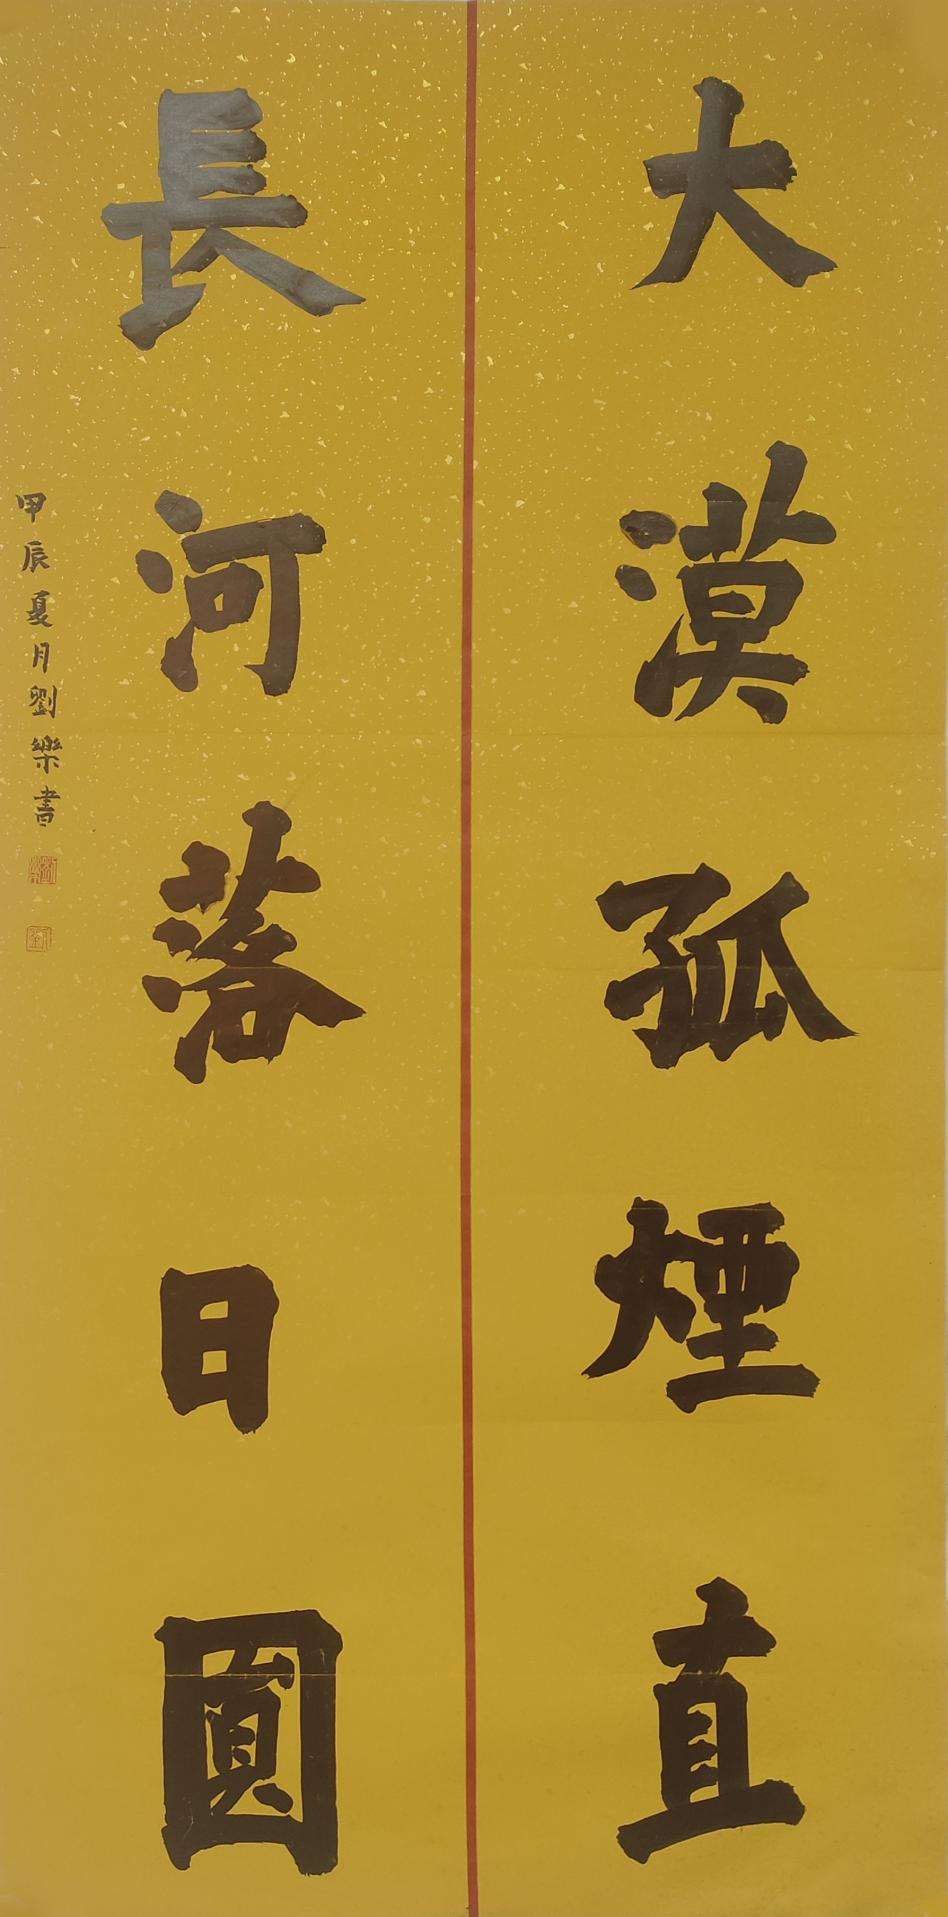 大漠孤煙直
長河落日圓
甲辰夏月劉樂書